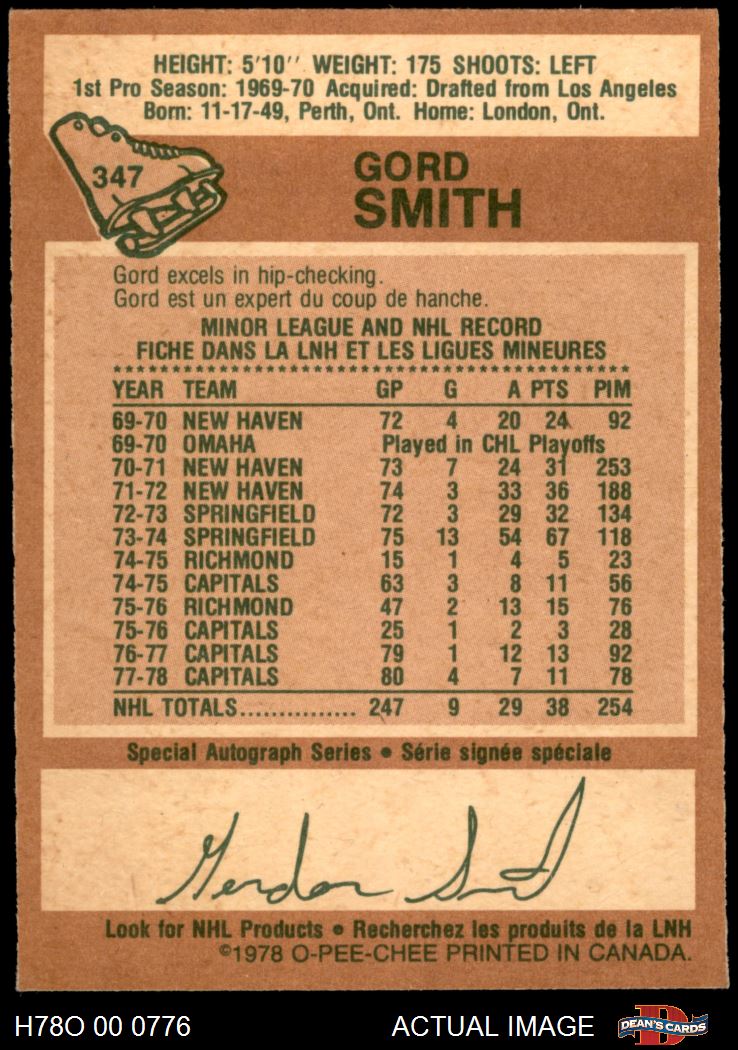 HEIGHT: 5'10'' WEIGHT: 175 SHOOTS: LEFT
1st Pro Season: 1969-70 Acquired: Drafted from Los Angeles
Born: 11-17-49, Perth, Ont. Home: London, Ont.
347
GORD
SMITH
Gord excels in hip-checking.
Gord est un expert du coup de hanche.
MINOR LEAGUE AND NHL RECORD
FICHE DANS LA LNH ET LES LIGUES MINEURES
YEAR TEAM GP G A PTS PIM
69-70 NEW HAVEN 72 4 20 24 92
69-70 OMAHA Played in CHL Playoffs
70-71 NEW HAVEN 73 7 24 31 253
71-72 NEW HAVEN 74 3 33 36 188
72-73 SPRINGFIELD 72 3 29 32 134
73-74 SPRINGFIELD 75 13 54 67 118
74-75 RICHMOND 15 1 4 5 23
74-75 CAPITALS 63 3 8 11 56
75-76 RICHMOND 47 2 13 15 76
75-76 CAPITALS 25 1 2 3 28
76-77 CAPITALS 79 1 12 13 92
77-78 CAPITALS 80 4 7 11 78
NHL TOTALS............... 247 9 29 38 254
Special Autograph Series • Série signée spéciale
Gordon Smith
Look for NHL Products • Recherchez les produits de la LNH
©1978 O-PEE-CHEE PRINTED IN CANADA.
H78O 00 0776 ACTUAL IMAGE DEAN'S CARDS